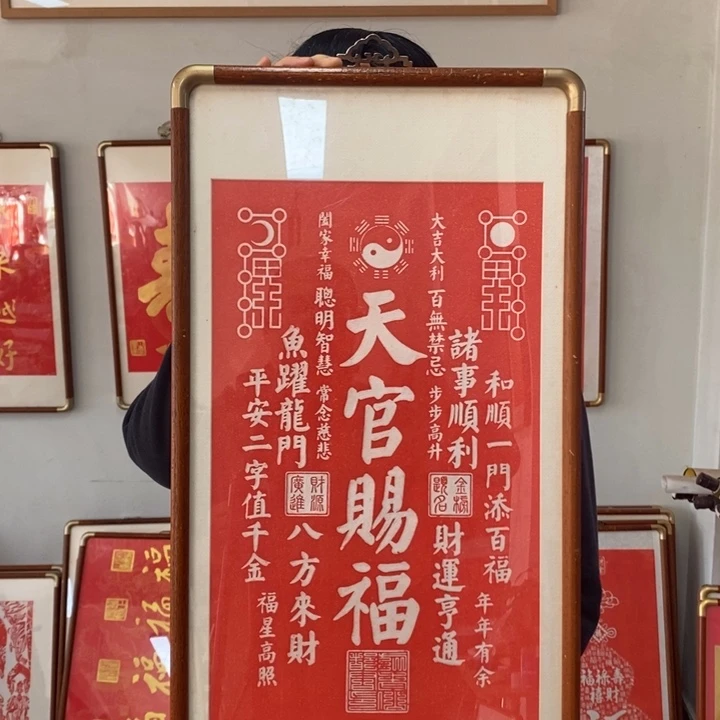 天官賜福
大吉大利 百無禁忌 步步高升
諸事順利
金榜題名
財運亨通
和順一門添百福
年年有余
闔家幸福 聰明智慧 常念慈悲
魚躍龍門
財源廣進
八方來財
平安二字值千金
福星高照
越
好
福祿壽
禧財